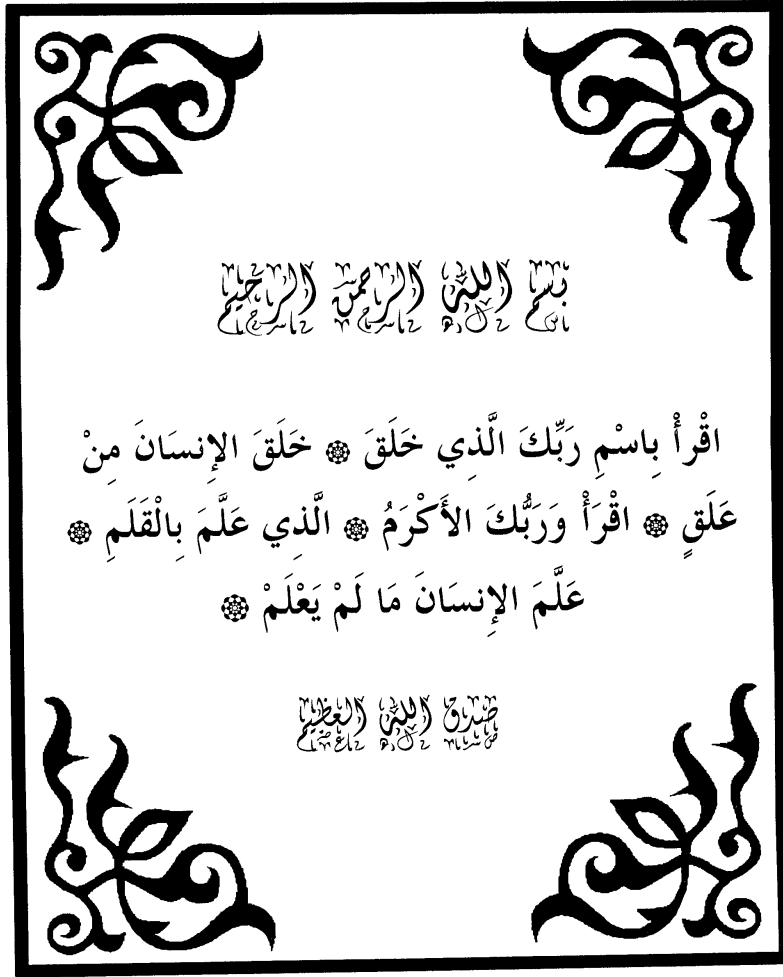 بسم الله الرحمن الرحيم
اقْرأْ بِاسْمِ رَبِّكَ الَّذِي خَلَقَ ۞ خَلَقَ الإِنسَانَ مِنْ
عَلَقٍ ۞ اقْرَأْ وَرَبُّكَ الأَكْرَمُ ۞ الَّذِي عَلَّمَ بِالْقَلَمِ ۞
عَلَّمَ الإِنسَانَ مَا لَمْ يَعْلَمْ ۞
صدق الله العظيم